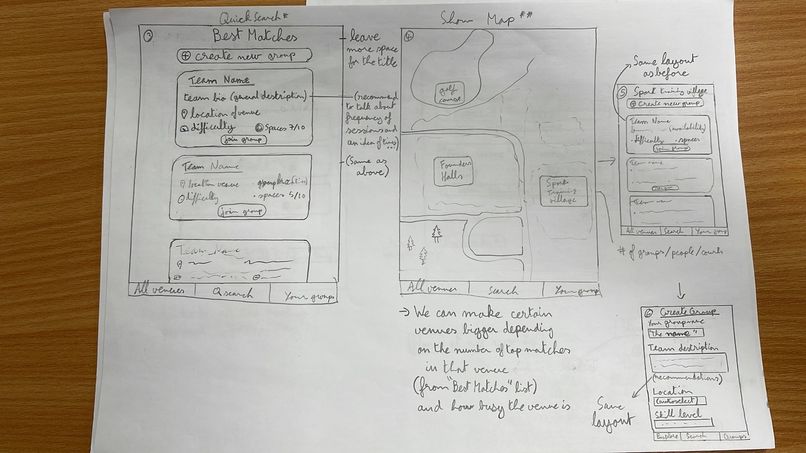 Quick Search*
③
Best Matches
⊕ create new group
Team Name
team bio (general description)
location of venue
difficulty
Spaces 7/10
join group
Team Name
location venue
difficulty
spaces 5/10
join group
Team Name
All venues
Q search
Your groups
leave
more space
for the title
(recommend
to talk about
frequency of
sessions and
an idea of
(Same as
above)
Show Map**
④
golf
course
Founders
Halls
Sport
Training
village
All venues
Search
Your group
→ We can make certain
venues bigger depending
on the number of top matches
in that venue
(from "Best Matches" list)
and how busy the venue is
Same layout
as before
⑤ Sport training village
⊕ Create new group
Team Name
(availability)
difficulty
spaces
join group
Team name
Team Name
All venues
Search
Your group
# of groups/people/courts
⑥ Create Group
Your group name
"The name"
Team description
(recommendations)
Location
(autoselect)
Skill level
Explore
Search
Groups
Same
layout